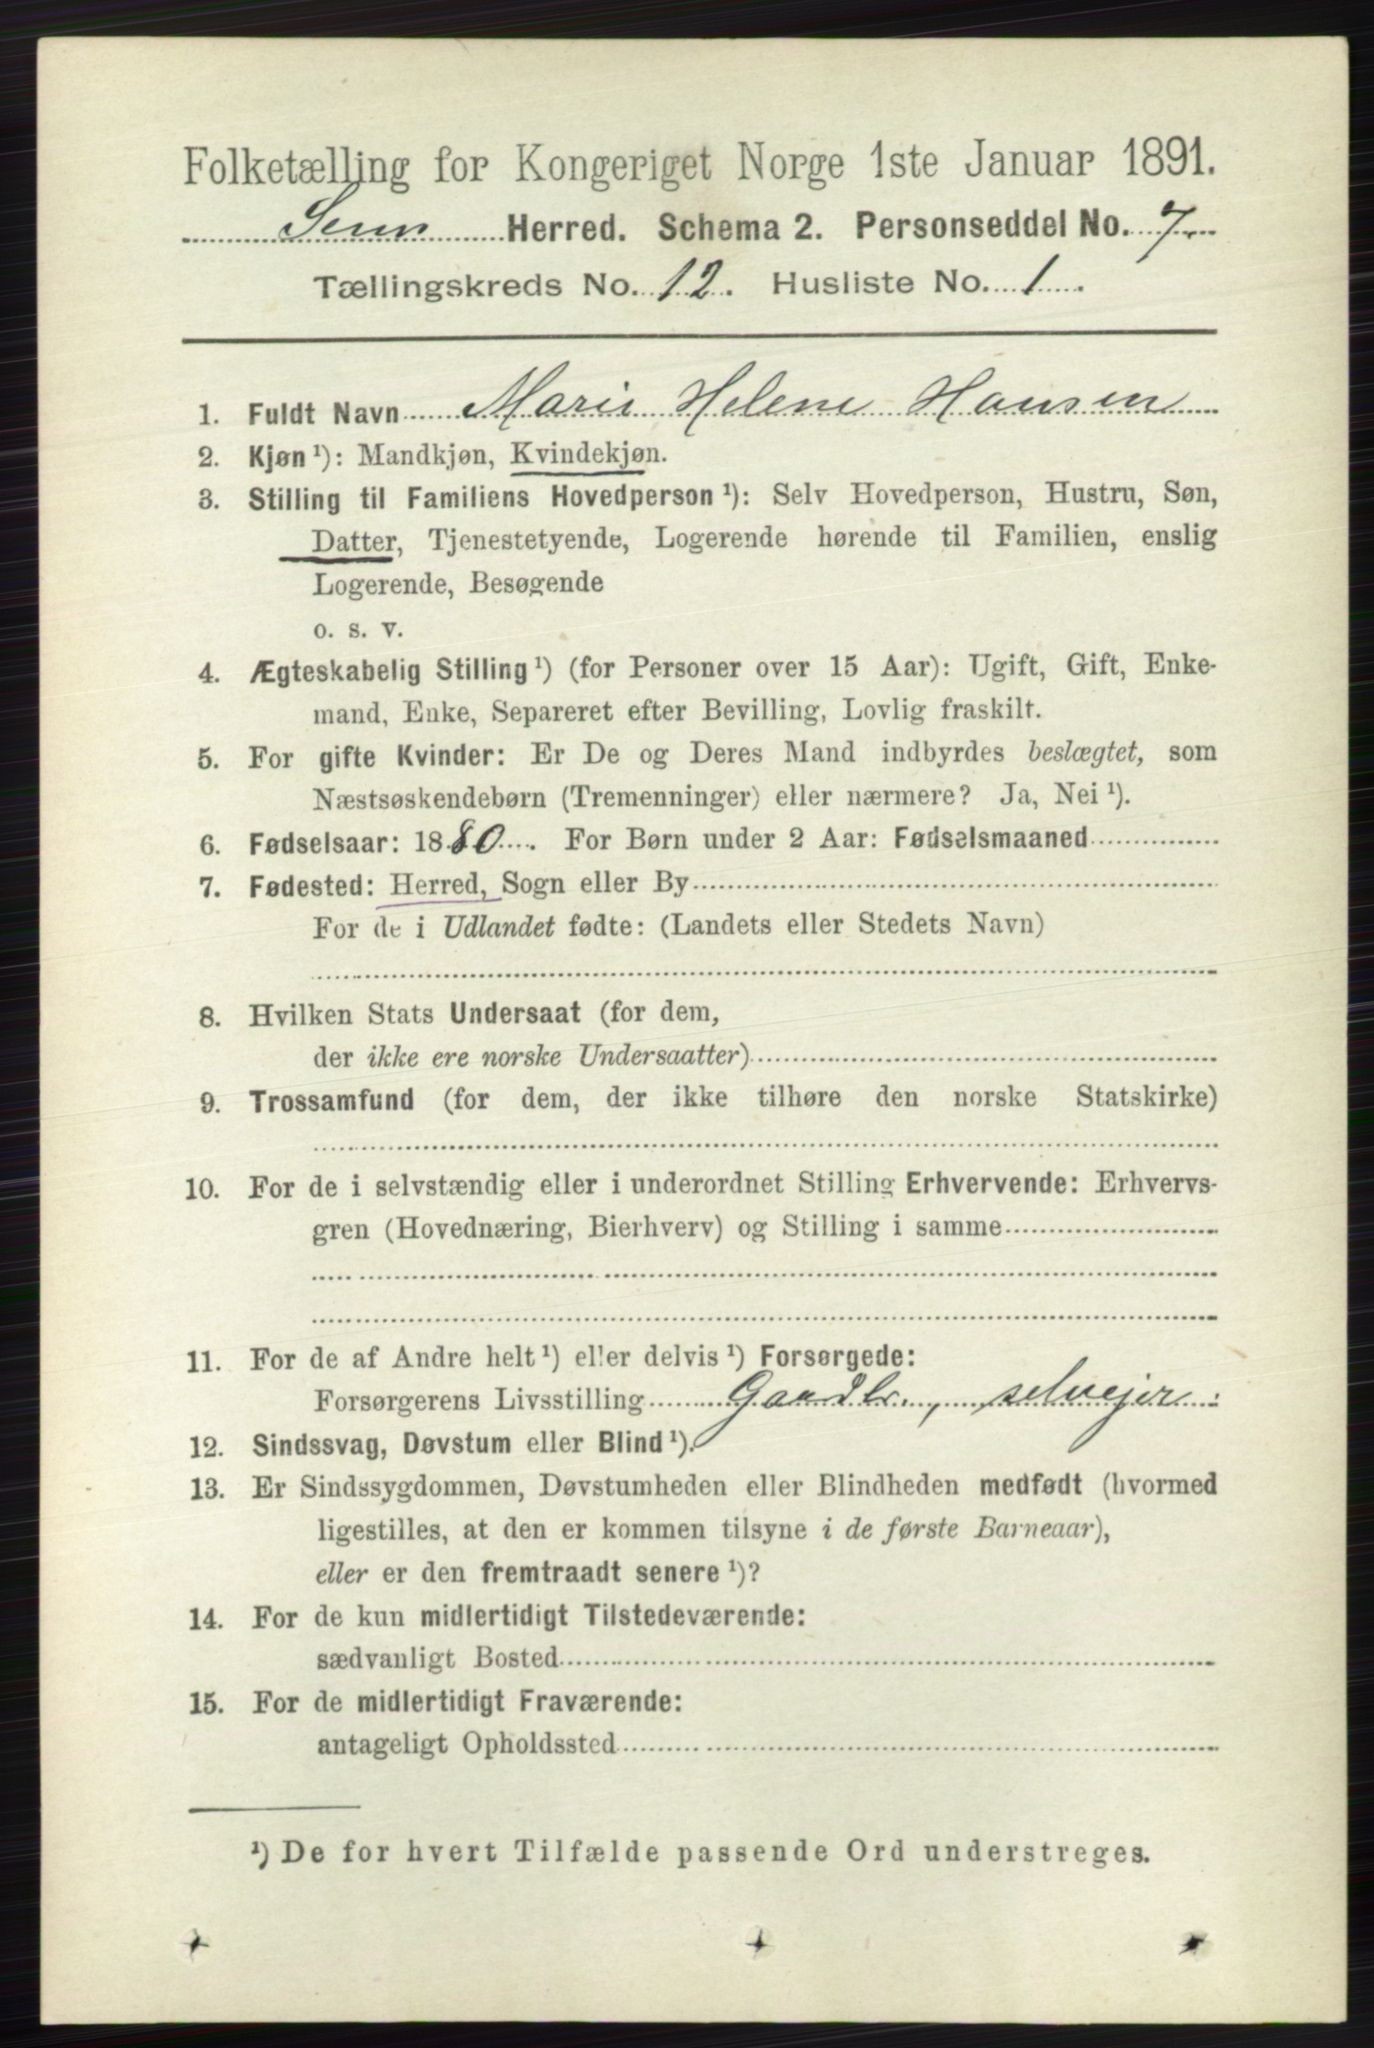 Folketælling for Kongeriget Norge 1ste Januar 1891.
Sem Herred. Schema 2. Personseddel No. 7
Tællingskreds No. 12. Husliste No. 1.
1. Fuldt Navn Marie Helene Hansen
2. Kjøn ¹): Mandkjøn, Kvindekjøn.
3. Stilling til Familiens Hovedperson ¹): Selv Hovedperson, Hustru, Søn,
Datter, Tjenestetyende, Logerende hørende til Familien, enslig
Logerende, Besøgende
o. s. v.
4. Ægteskabelig Stilling ¹) (for Personer over 15 Aar): Ugift, Gift, Enke-
mand, Enke, Separeret efter Bevilling, Lovlig fraskilt.
5. For gifte Kvinder: Er De og Deres Mand indbyrdes beslægtet, som
Næstsøskendebørn (Tremenninger) eller nærmere? Ja, Nei ¹).
6. Fødselsaar: 1880. For Børn under 2 Aar: Fødselsmaaned
7. Fødested: Herred, Sogn eller By
For de i Udlandet fødte: (Landets eller Stedets Navn)
8. Hvilken Stats Undersaat (for dem,
der ikke ere norske Undersaatter)
9. Trossamfund (for dem, der ikke tilhøre den norske Statskirke)
10. For de i selvstændig eller i underordnet Stilling Erhvervende: Erhvervs-
gren (Hovednæring, Bierhverv) og Stilling i samme
11. For de af Andre helt ¹) eller delvis ¹) Forsørgede:
Forsørgerens Livsstilling Gaardbr., selvejer
12. Sindssvag, Døvstum eller Blind ¹).
13. Er Sindssygdommen, Døvstumheden eller Blindheden medfødt (hvormed
ligestilles, at den er kommen tilsyne i de første Barneaar),
eller er den fremtraadt senere ¹)?
14. For de kun midlertidigt Tilstedeværende:
sædvanligt Bosted
15. For de midlertidigt Fraværende:
antageligt Opholdssted
¹) De for hvert Tilfælde passende Ord understreges.